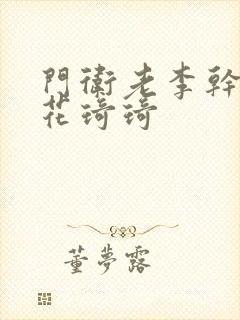 門衛老李幹
花琦琦
董夢露